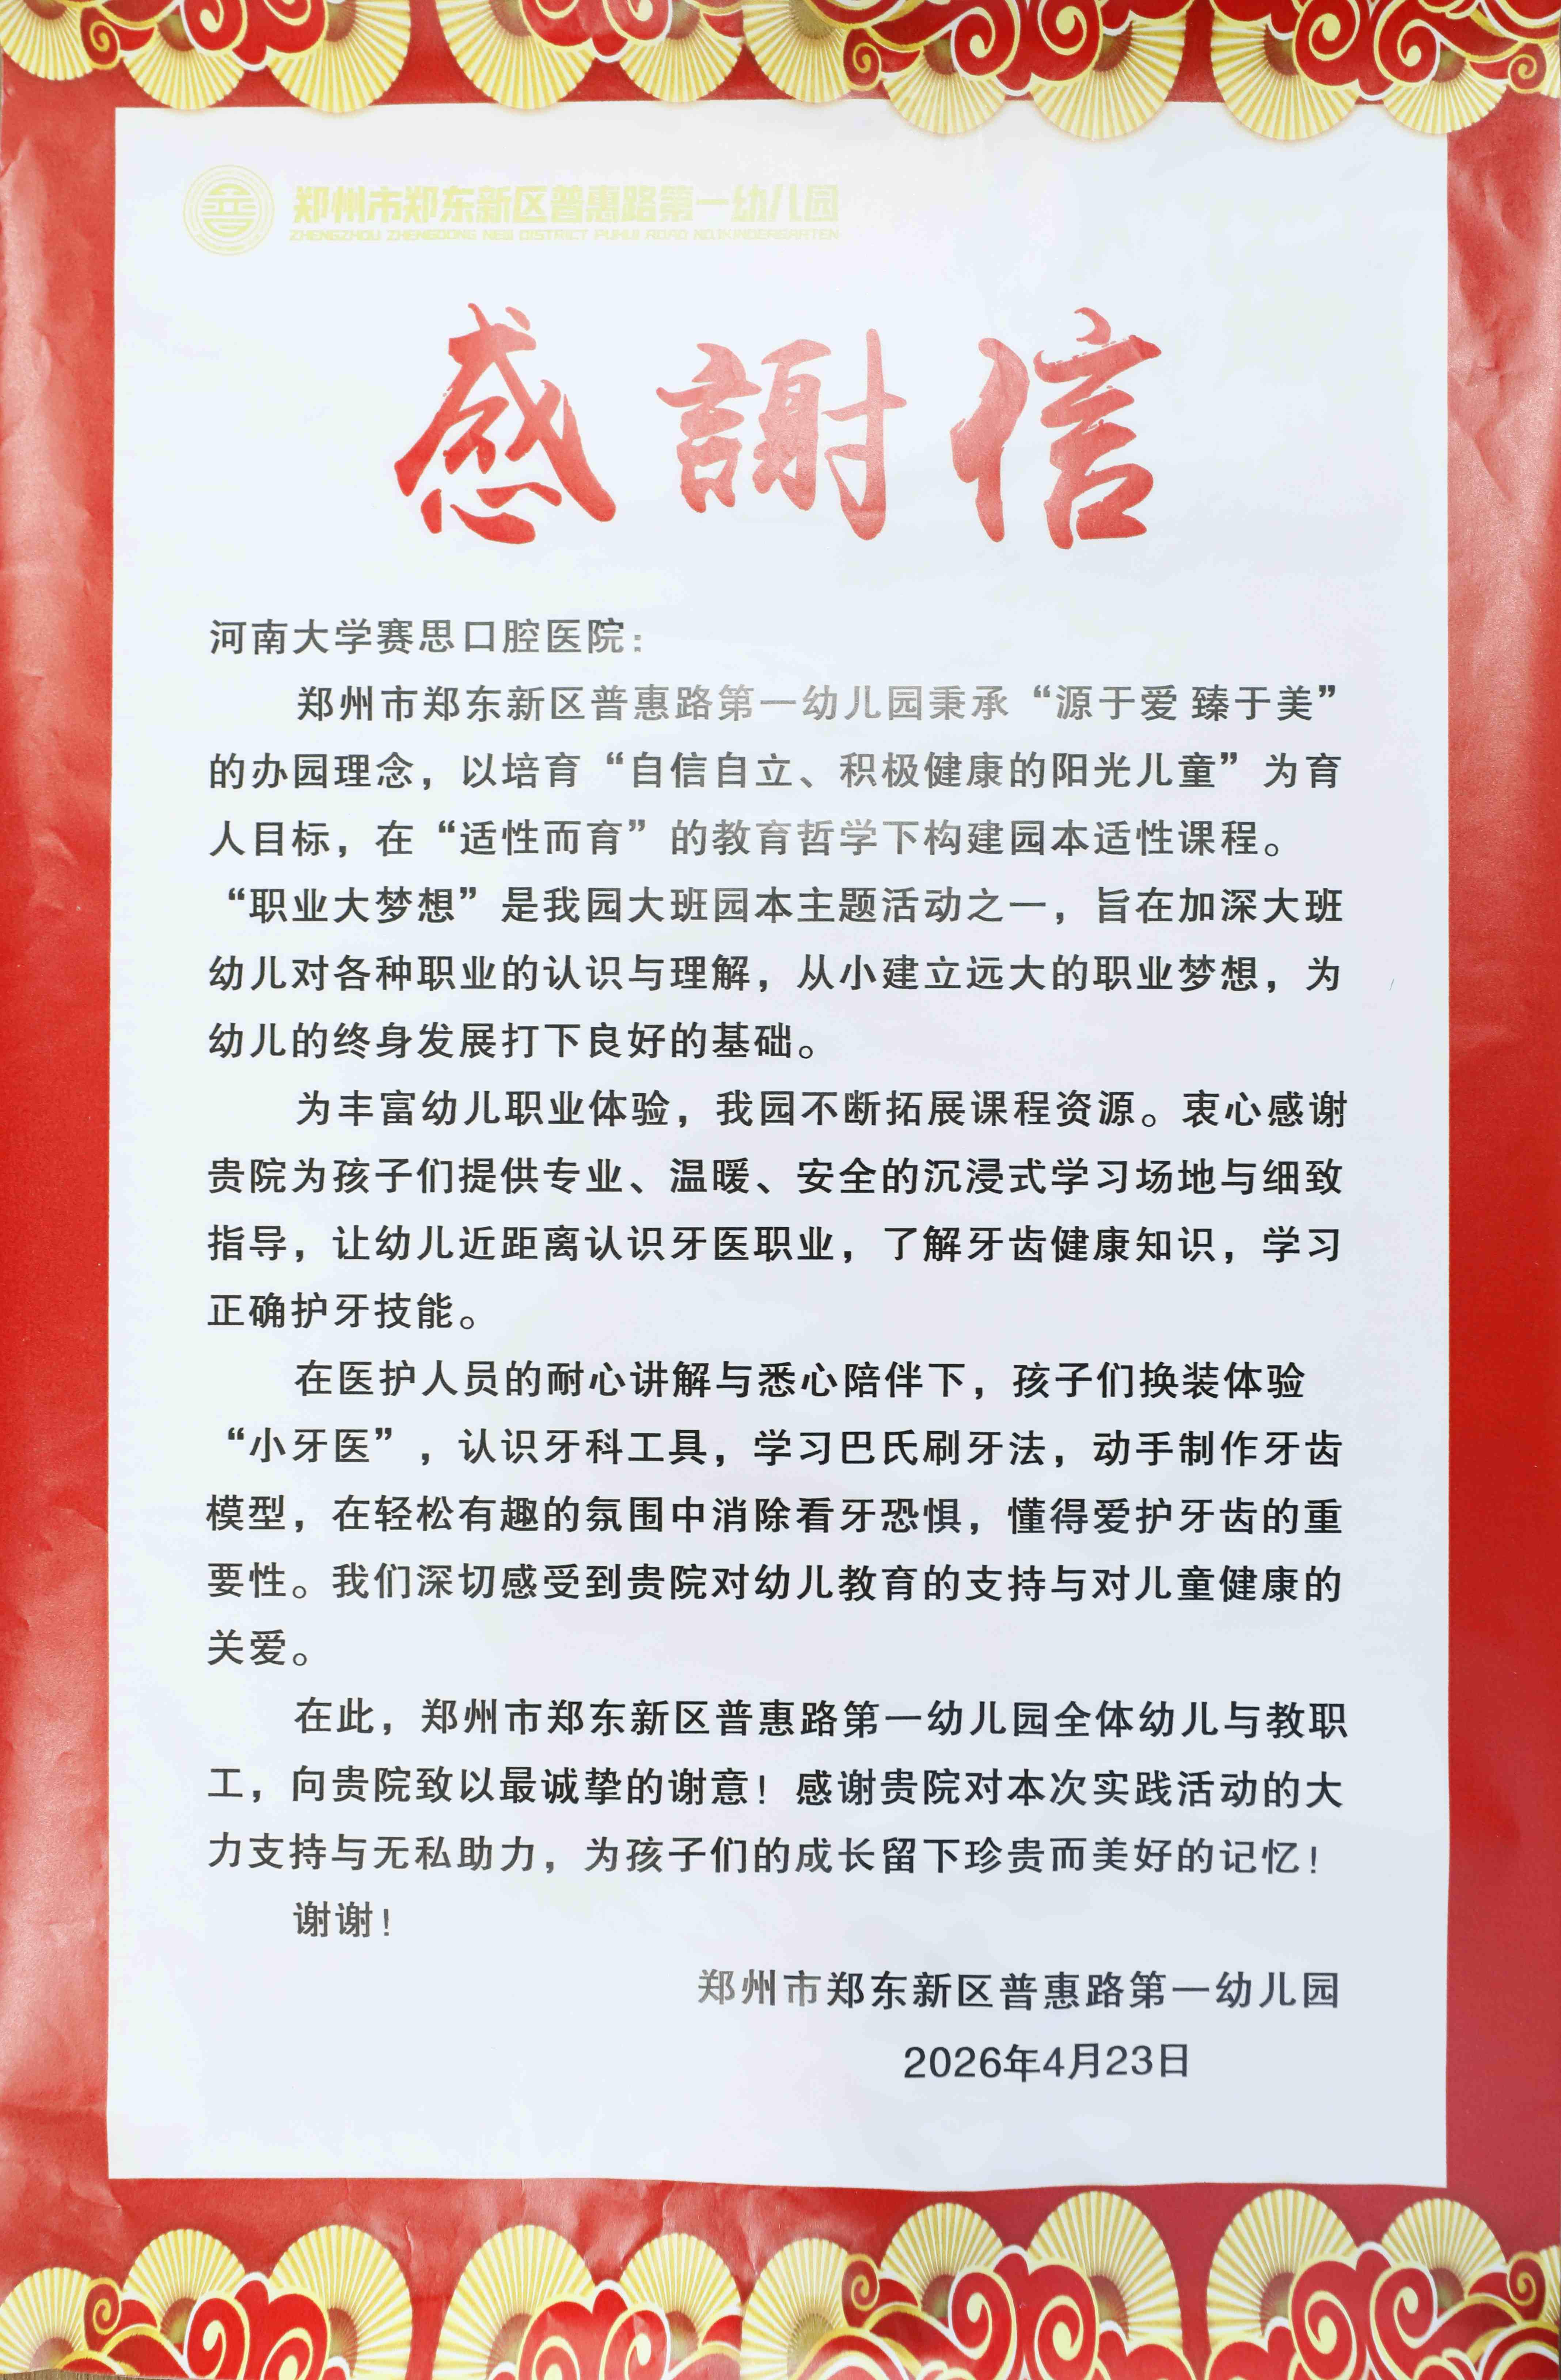 郑州市郑东新区普惠路第一幼儿园
ZHENGZHOU ZHENGDONG NEW DISTRICT PUHUI ROAD NO.1KINDERGARTEN
感謝信
河南大学赛思口腔医院：
郑州市郑东新区普惠路第一幼儿园秉承“源于爱 臻于美”
的办园理念，以培育“自信自立、积极健康的阳光儿童”为育
人目标，在“适性而育”的教育哲学下构建园本适性课程。
“职业大梦想”是我园大班园本主题活动之一，旨在加深大班
幼儿对各种职业的认识与理解，从小建立远大的职业梦想，为
幼儿的终身发展打下良好的基础。
为丰富幼儿职业体验，我园不断拓展课程资源。衷心感谢
贵院为孩子们提供专业、温暖、安全的沉浸式学习场地与细致
指导，让幼儿近距离认识牙医职业，了解牙齿健康知识，学习
正确护牙技能。
在医护人员的耐心讲解与悉心陪伴下，孩子们换装体验
“小牙医”，认识牙科工具，学习巴氏刷牙法，动手制作牙齿
模型，在轻松有趣的氛围中消除看牙恐惧，懂得爱护牙齿的重
要性。我们深切感受到贵院对幼儿教育的支持与对儿童健康的
关爱。
在此，郑州市郑东新区普惠路第一幼儿园全体幼儿与教职
工，向贵院致以最诚挚的谢意！感谢贵院对本次实践活动的大
力支持与无私助力，为孩子们的成长留下珍贵而美好的记忆！
谢谢！
郑州市郑东新区普惠路第一幼儿园
2026年4月23日